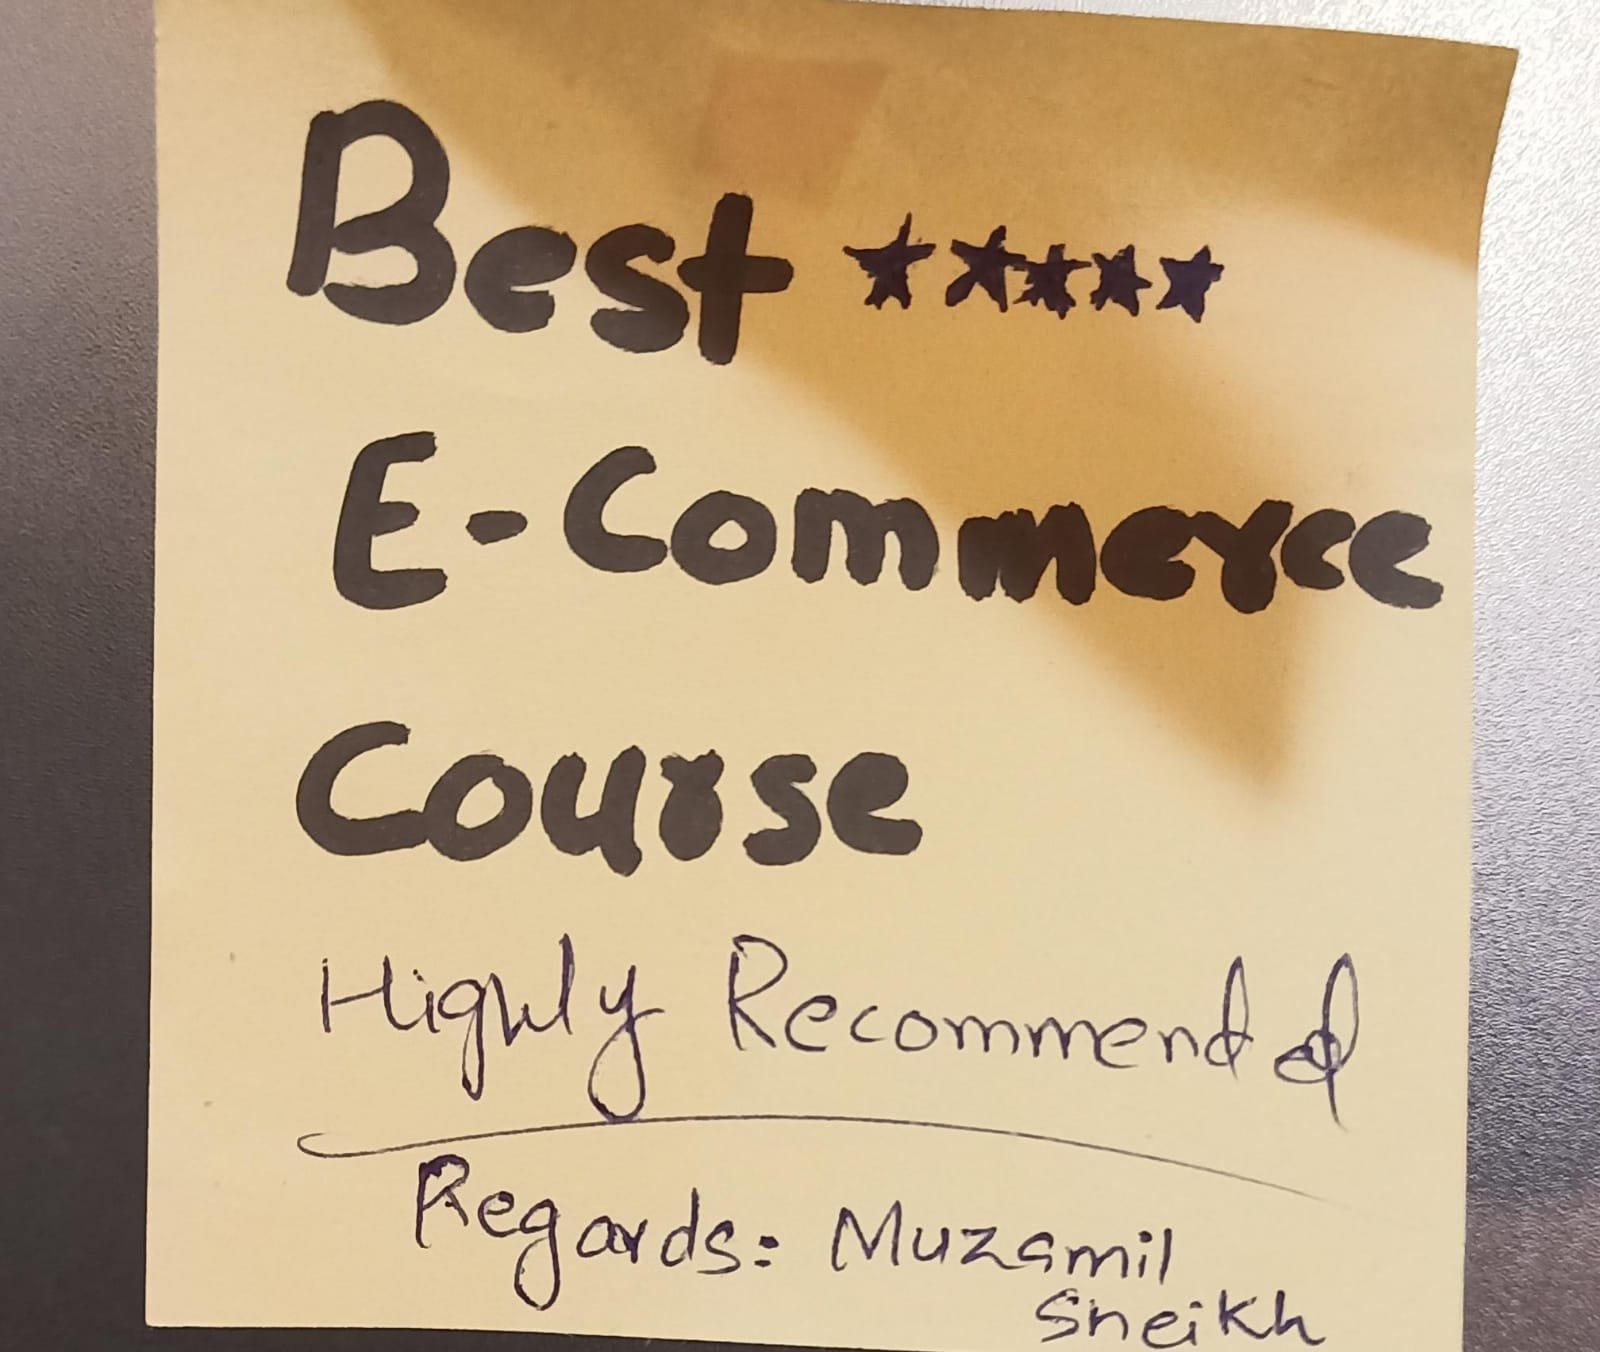 Best ★★★★★
E-Commerce
Course
Highly Recommended
Regards: Muzamil
Sheikh